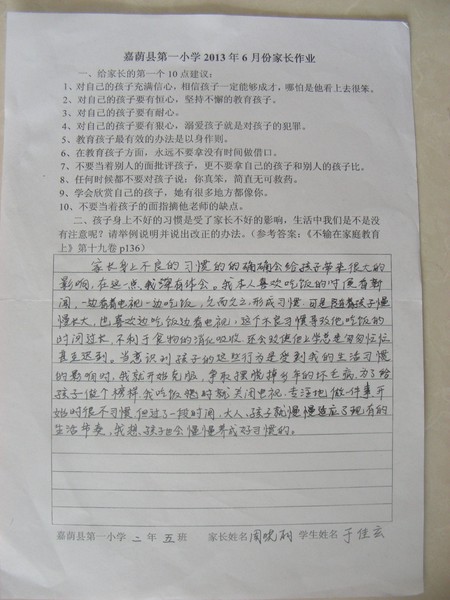 嘉荫县第一小学 2013 年 6 月份家长作业
一、给家长的第一个 10 点建议:
1、对自己的孩子充满信心,相信孩子一定能够成才,哪怕是他看上去很笨。
2、对自己的孩子要有恒心,坚持不懈的教育孩子。
3、对自己的孩子要有耐心。
4、对自己的孩子要有狠心,溺爱孩子就是对孩子的犯罪。
5、教育孩子最有效的办法是以身作则。
6、在教育孩子方面,永远不要拿没有时间做借口。
7、不要当着别人的面批评孩子,更不要拿自己的孩子和别人的孩子比。
8、任何时候都不要对孩子说:你真笨,简直无可救药。
9、学会欣赏自己的孩子,她有很多地方都像你。
10、不要当着孩子的面指摘他老师的缺点。
二、孩子身上不好的习惯是受了家长不好的影响,生活中我们是不是没
有注意呢?请举例说明并说出改正的办法。(参考答案:《不输在家庭教育
上》第十九卷 p136)
家长身上不良的习惯的的确确会给孩子带来很大的
影响,在这一点,我深有体会。我本人喜欢吃饭的时候看新
闻,一边看电视一边吃饭,久而久之,形成习惯,可是随着孩子慢
慢长大,也喜欢边吃饭边看电视,这个不良习惯导致他吃饭的
时间过长,不利于食物的消化吸收,还会致使他上学总是匆匆忙忙
甚至迟到。当意识到孩子的这些行为是受到我的生活习惯
的影响时,我就开始克服,争取摆脱掉多年的坏毛病,为了给
孩子做个榜样,我吃饭

时就关闭电视,专注地做一件事开
始时很不习惯,但过了一段时间,大人、孩子就慢慢适应了现有的
生活节奏,我想,孩子也会慢慢养成好习惯的。
嘉荫县第一小学 二 年 五 班 家长姓名 周晓 学生姓名 于佳云